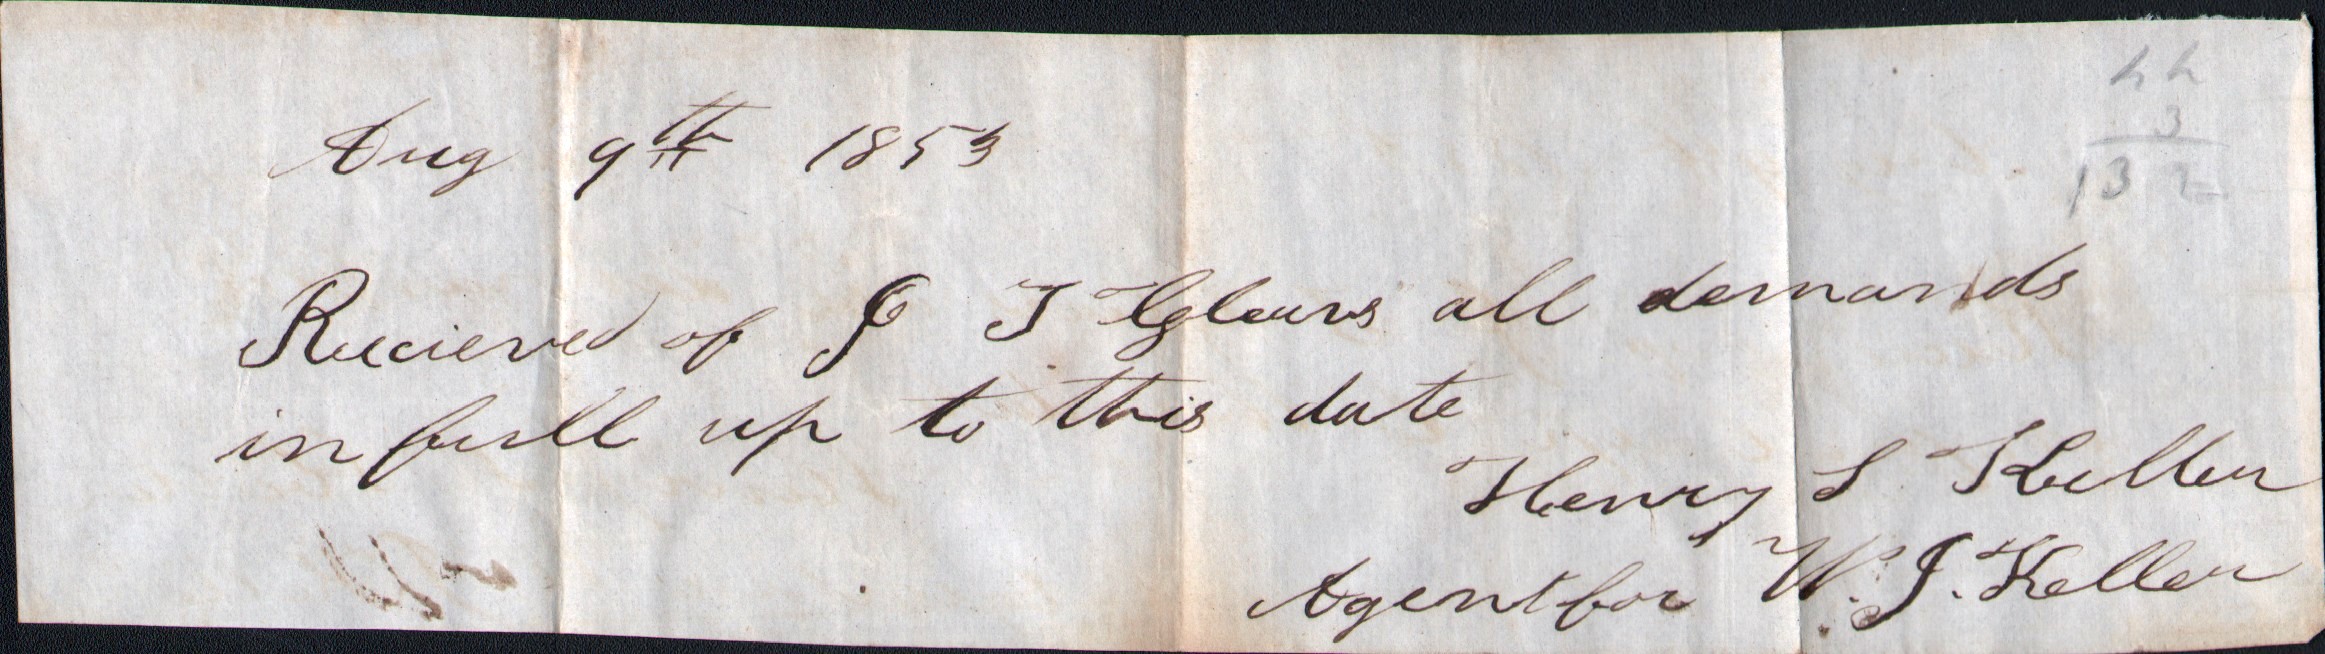 44
3
132
Aug 9th 1853
Recieved of J T all demands
in full up to this date
Henry S Keller
Agent for W. J. Keller